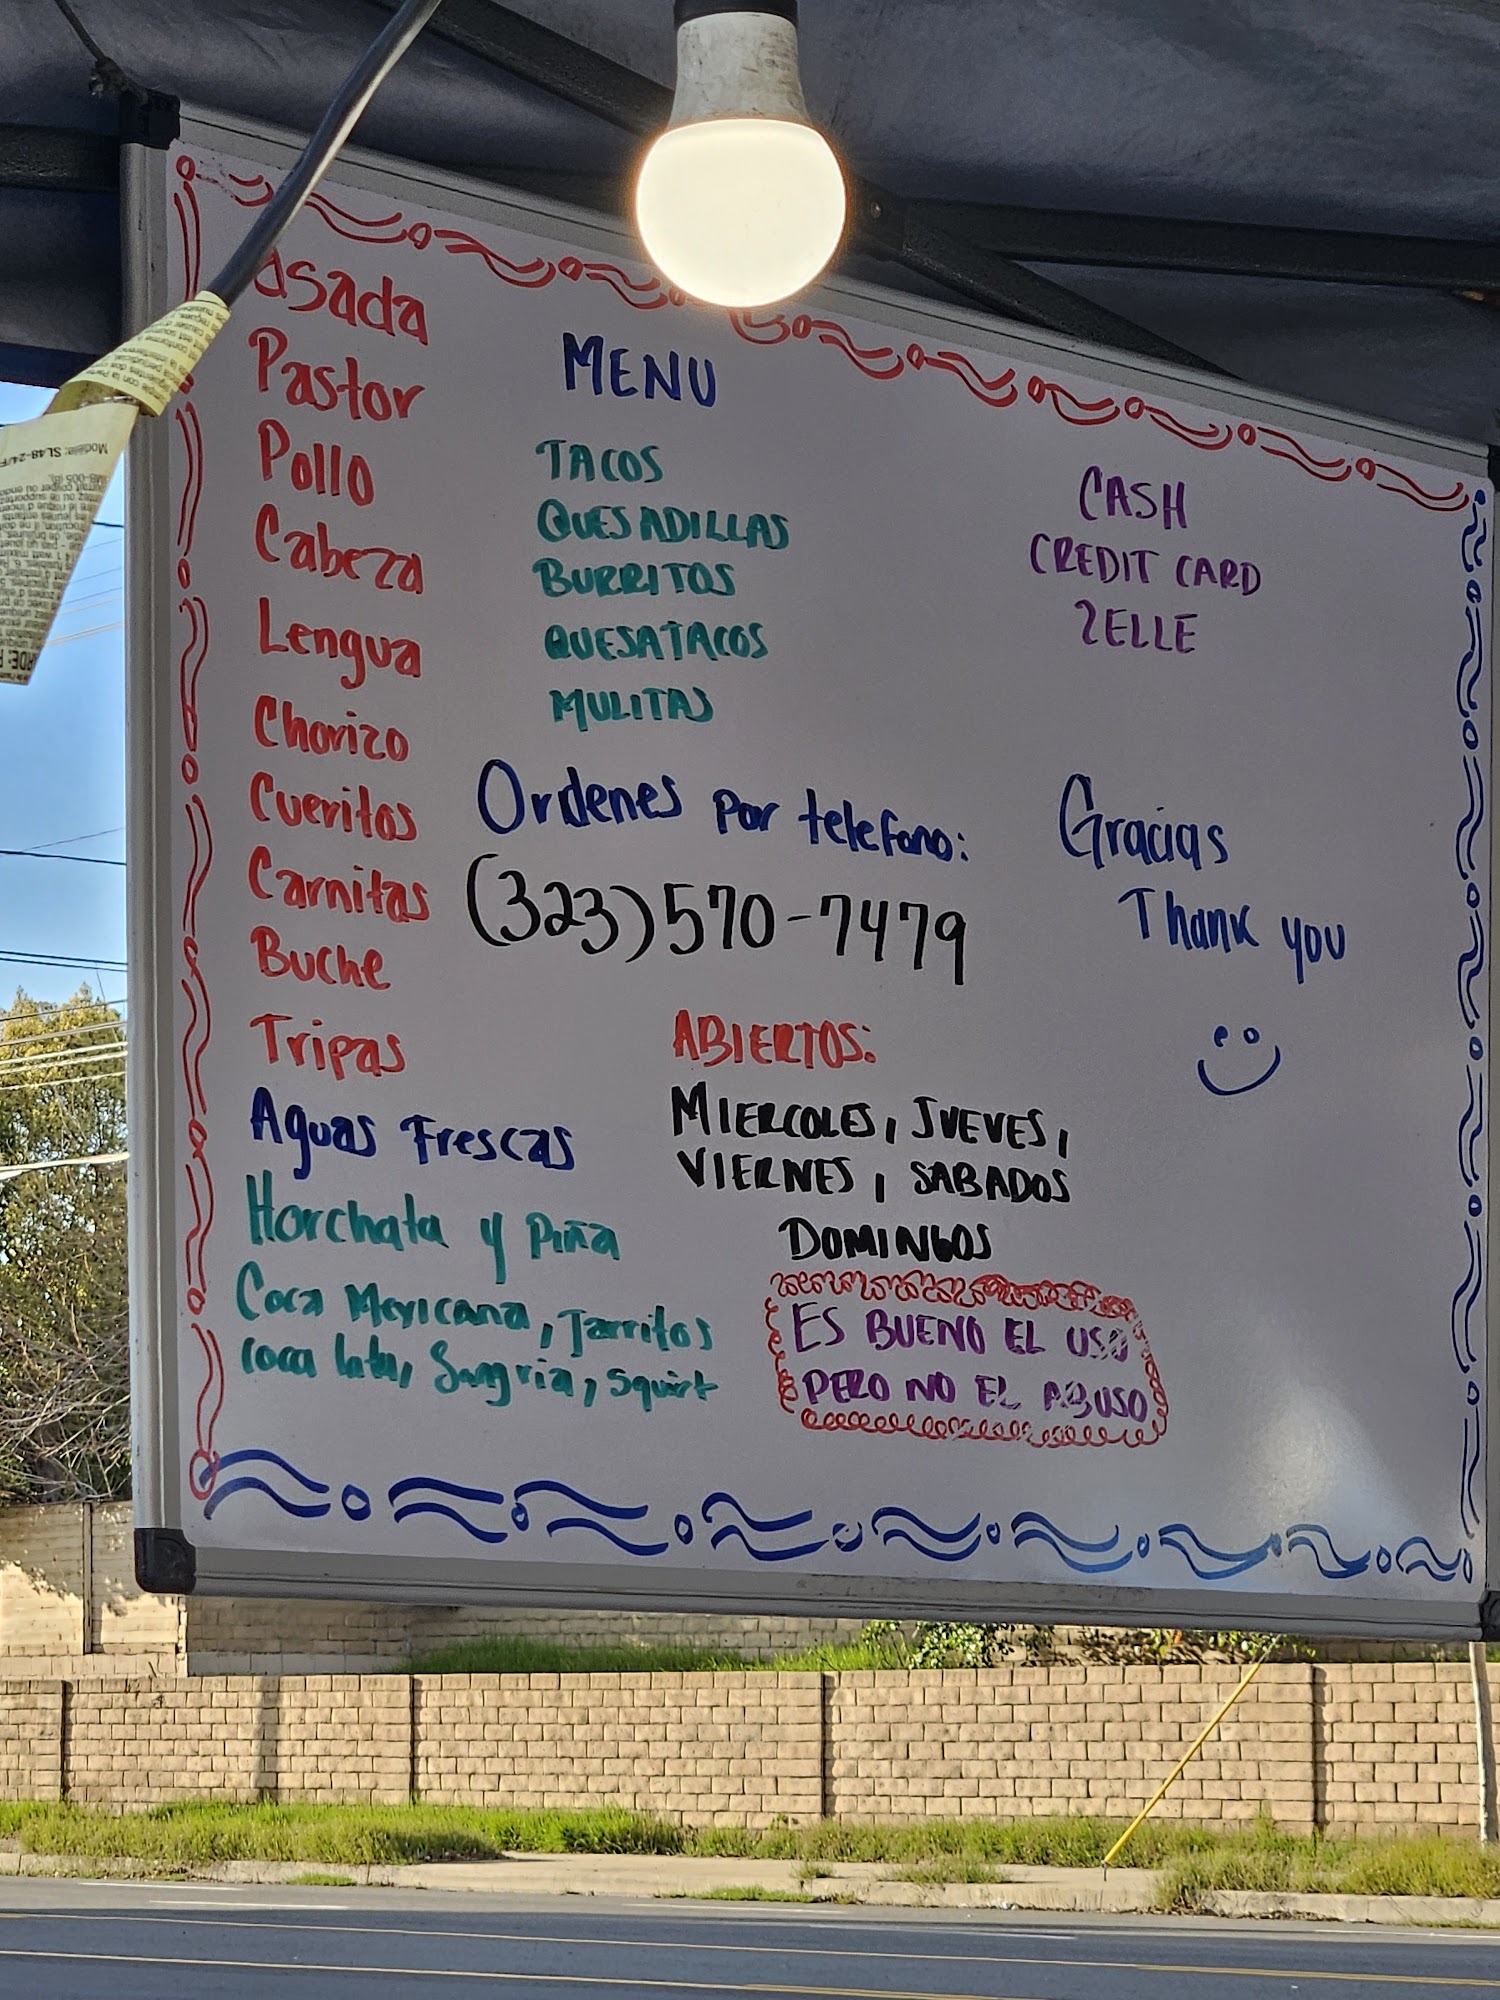 asada
Pastor
Pollo
Cabeza
Lengua
Chorizo
Cueritos
Carnitas
Buche
Tripas
Aguas Frescas
Horchata y Piña
Coca Mexicana, Jarritos
coca lata, Sangria, Squirt
MENU
TACOS
QUESADILLAS
BURRITOS
QUESATACOS
MULITAS
CASH
CREDIT CARD
ZELLE
Ordenes por telefono:
(323)570-7479
Gracias
Thank you
ABIERTOS:
MIERCOLES, JUEVES,
VIERNES, SABADOS
DOMINGOS
ES BUENO EL USO
PERO NO EL ABUSO
Modèle: SL48-24/F